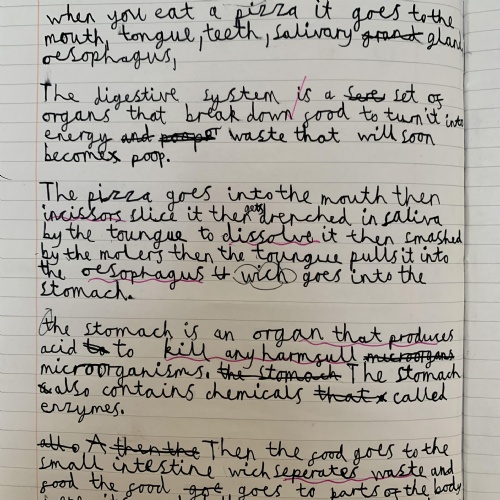 when you eat a pizza it goes to the
mouth, tongue, teeth, salivary grand gland
oesophagus,
The digestive system is a set of
organs that break down food to turn it into
energy and waste that will soon
become poop.
The pizza goes into the mouth then
incissors slice it then gets drenched in saliva
by the toungue to dissolve it then smashed
by the molers then the toungue pulls it into
the oesophagus it wich goes into the
stomach.
the stomach is an organ that produces
acid to to kill any harmfull microorgans
microorganisms. the stomach The stomach
also contains chemicals that called
enzymes.
A then the Then the food goes to the
small intestine wich seperates waste and
food the good goes to parts of the body